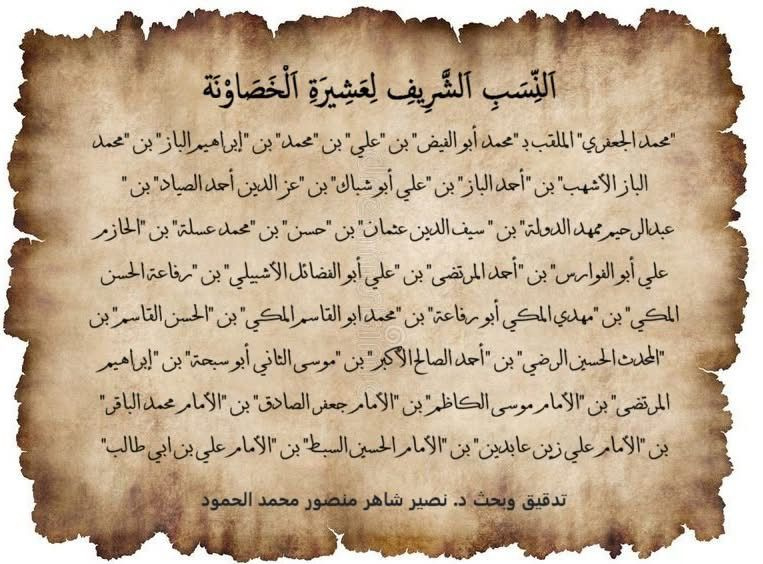 اَلنِّسَبِ اَلشَّرِيفِ لِعَشِيرَةِ اَلْخَصَاوْنَة
"محمد الجعفري" الملقب بـ "محمد أبو الفيض" بن "علي" بن "محمد" بن "إبراهيم الباز" بن "محمد
الباز الأشهب" بن "أحمد الباز" بن "علي أبو شباك" بن "عز الدين أحمد الصياد" بن "
عبدالرحيم ممهد الدولة" بن " سيف الدين عثمان" بن "حسن" بن "محمد عسلة" بن "الحازم
علي أبو الفوارس" بن "أحمد المرتضى" بن "علي أبو الفضائل الأشبيلي" بن "رفاعة الحسن
المكي" بن "مهدي المكي أبو رفاعة" بن "محمد ابو القاسم المكي" بن "الحسن القاسم" بن
"المحدث الحسين الرضي" بن "أحمد الصالح الأكبر" بن "موسى الثاني أبو سبحة" بن "إبراهيم
المرتضى" بن "الأمام موسى الكاظم" بن "الأمام جعفر الصادق" بن "الأمام محمد الباقر"
بن "الأمام علي زين عابدين" بن "الأمام الحسين السبط" بن "الأمام علي بن ابي طالب"
تدقيق وبحث د. نصير شاهر منصور محمد الحمود